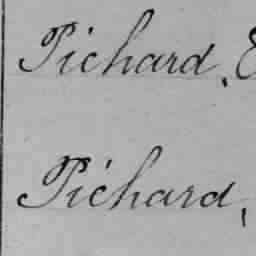 Pichard, E
Pichard,